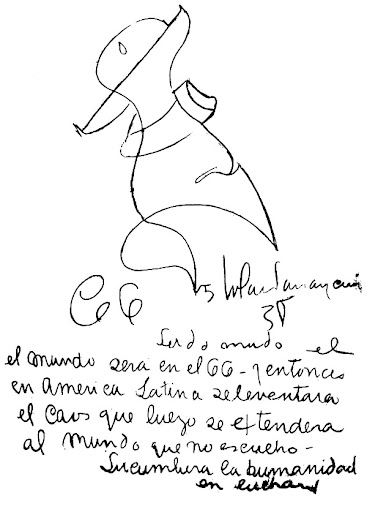 66
38
Sordo mudo el
el mundo sera en el 66 - y entonces
en America Latina se leventara
el Caos que luego se extendera
al Mundo que no escucho -
Sucumbira la humanidad
en